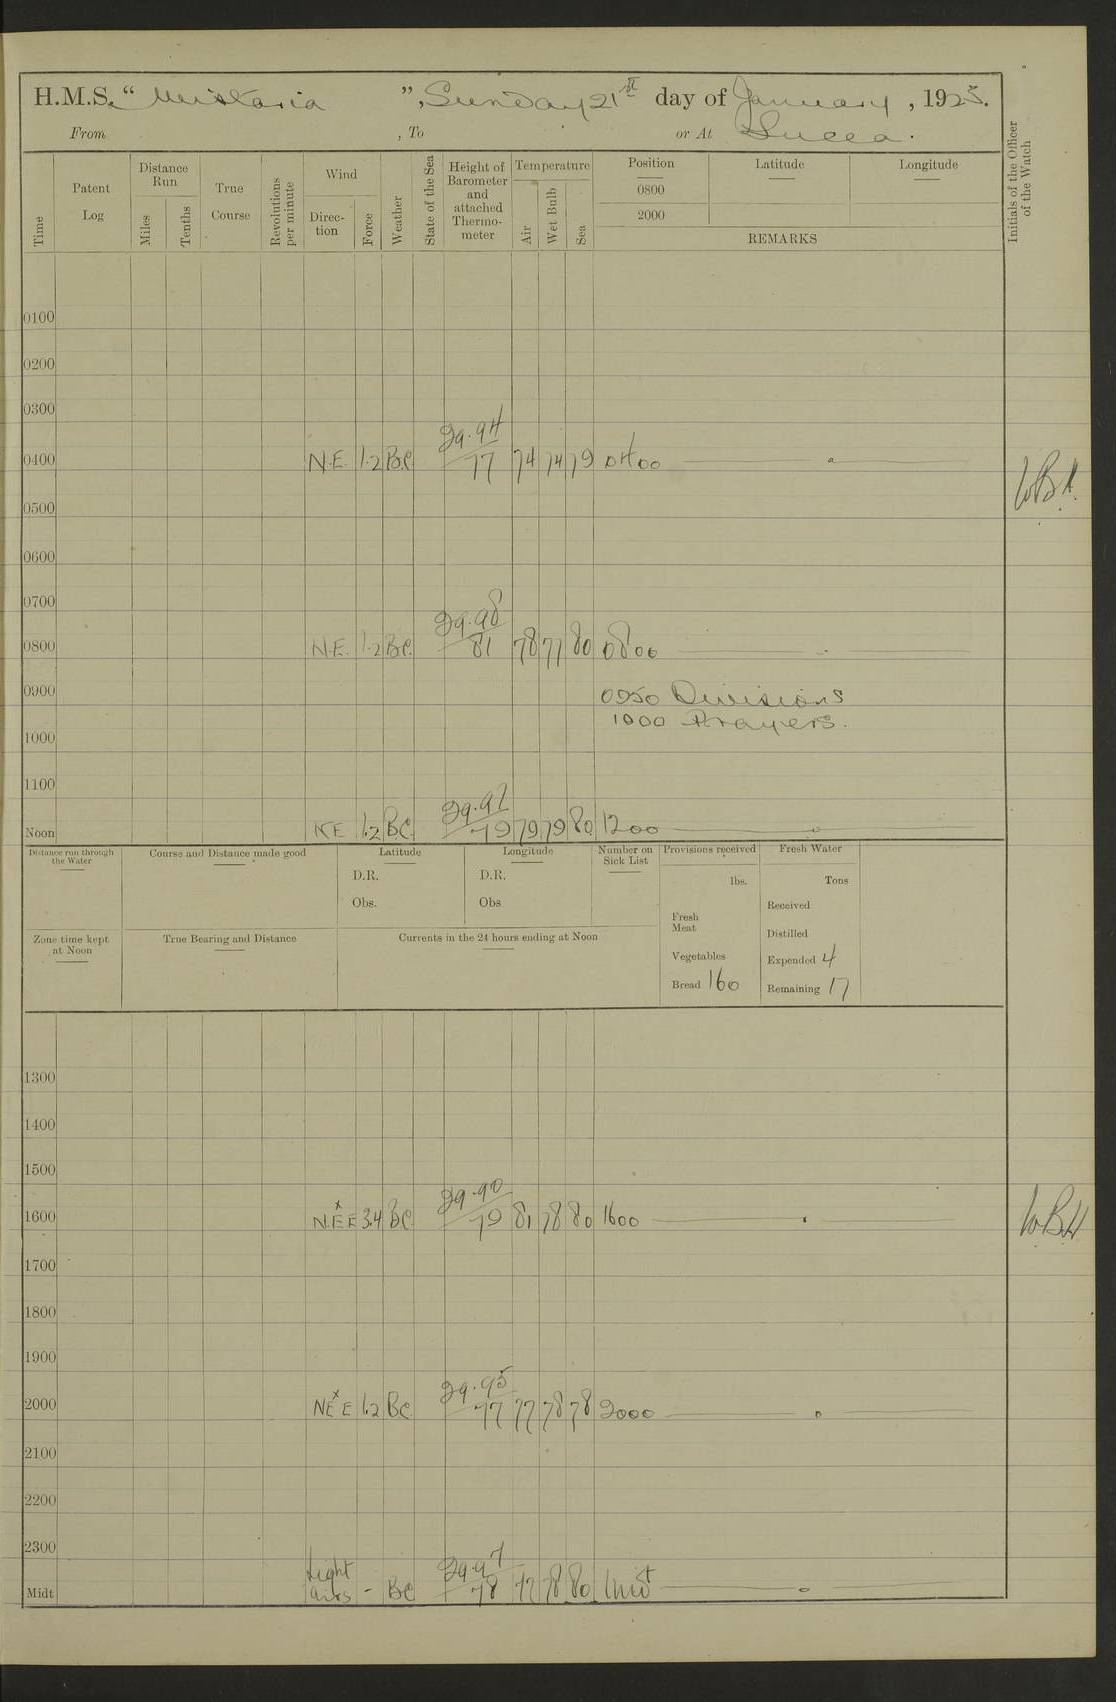 H.M.S. "Wistaria", Sunday 21st day of January, 1923.
From , To or At Lucea.
Time
Patent Log
Distance Run
Miles
Tenths
True Course
Revolutions per minute
Wind
Direction
Force
Weather
State of the Sea
Height of Barometer and attached Thermometer
Temperature
Air
Wet Bulb
Sea
Position Latitude Longitude
0800
2000
REMARKS
Initials of the Officer of the Watch
0100
0200
0300
29.94
0400 N.E. 1.2 B.C. 77 74 74 79 0400
0500
0600
0700
29.98
0800 N.E. 1.2 B.C. 81 78 77 80 0800
0900
0950 Divisions
1000 Prayers.
1000
1100
Noon NE 1.2 B.C. 79 79 79 80 1200
Distance run through the Water
Course and Distance made good
Latitude
D.R.
Obs.
Longitude
D.R.
Obs
Number on Sick List
Provisions received
lbs.
Fresh Meat
Vegetables
Bread 160
Fresh Water
Tons
Received
Distilled
Expended 4
Remaining 17
Zone time kept at Noon
True Bearing and Distance
Currents in the 24 hours ending at Noon
1300
1400
1500
29.90
1600 NExE 3.4 BC 79 81 78 80 1600
1700
1800
1900
29.95
2000 NExE 1.2 BC 77 77 78 78 2000
2100
2200
2300
29.97
Midt Light airs - BC 78 77 78 80